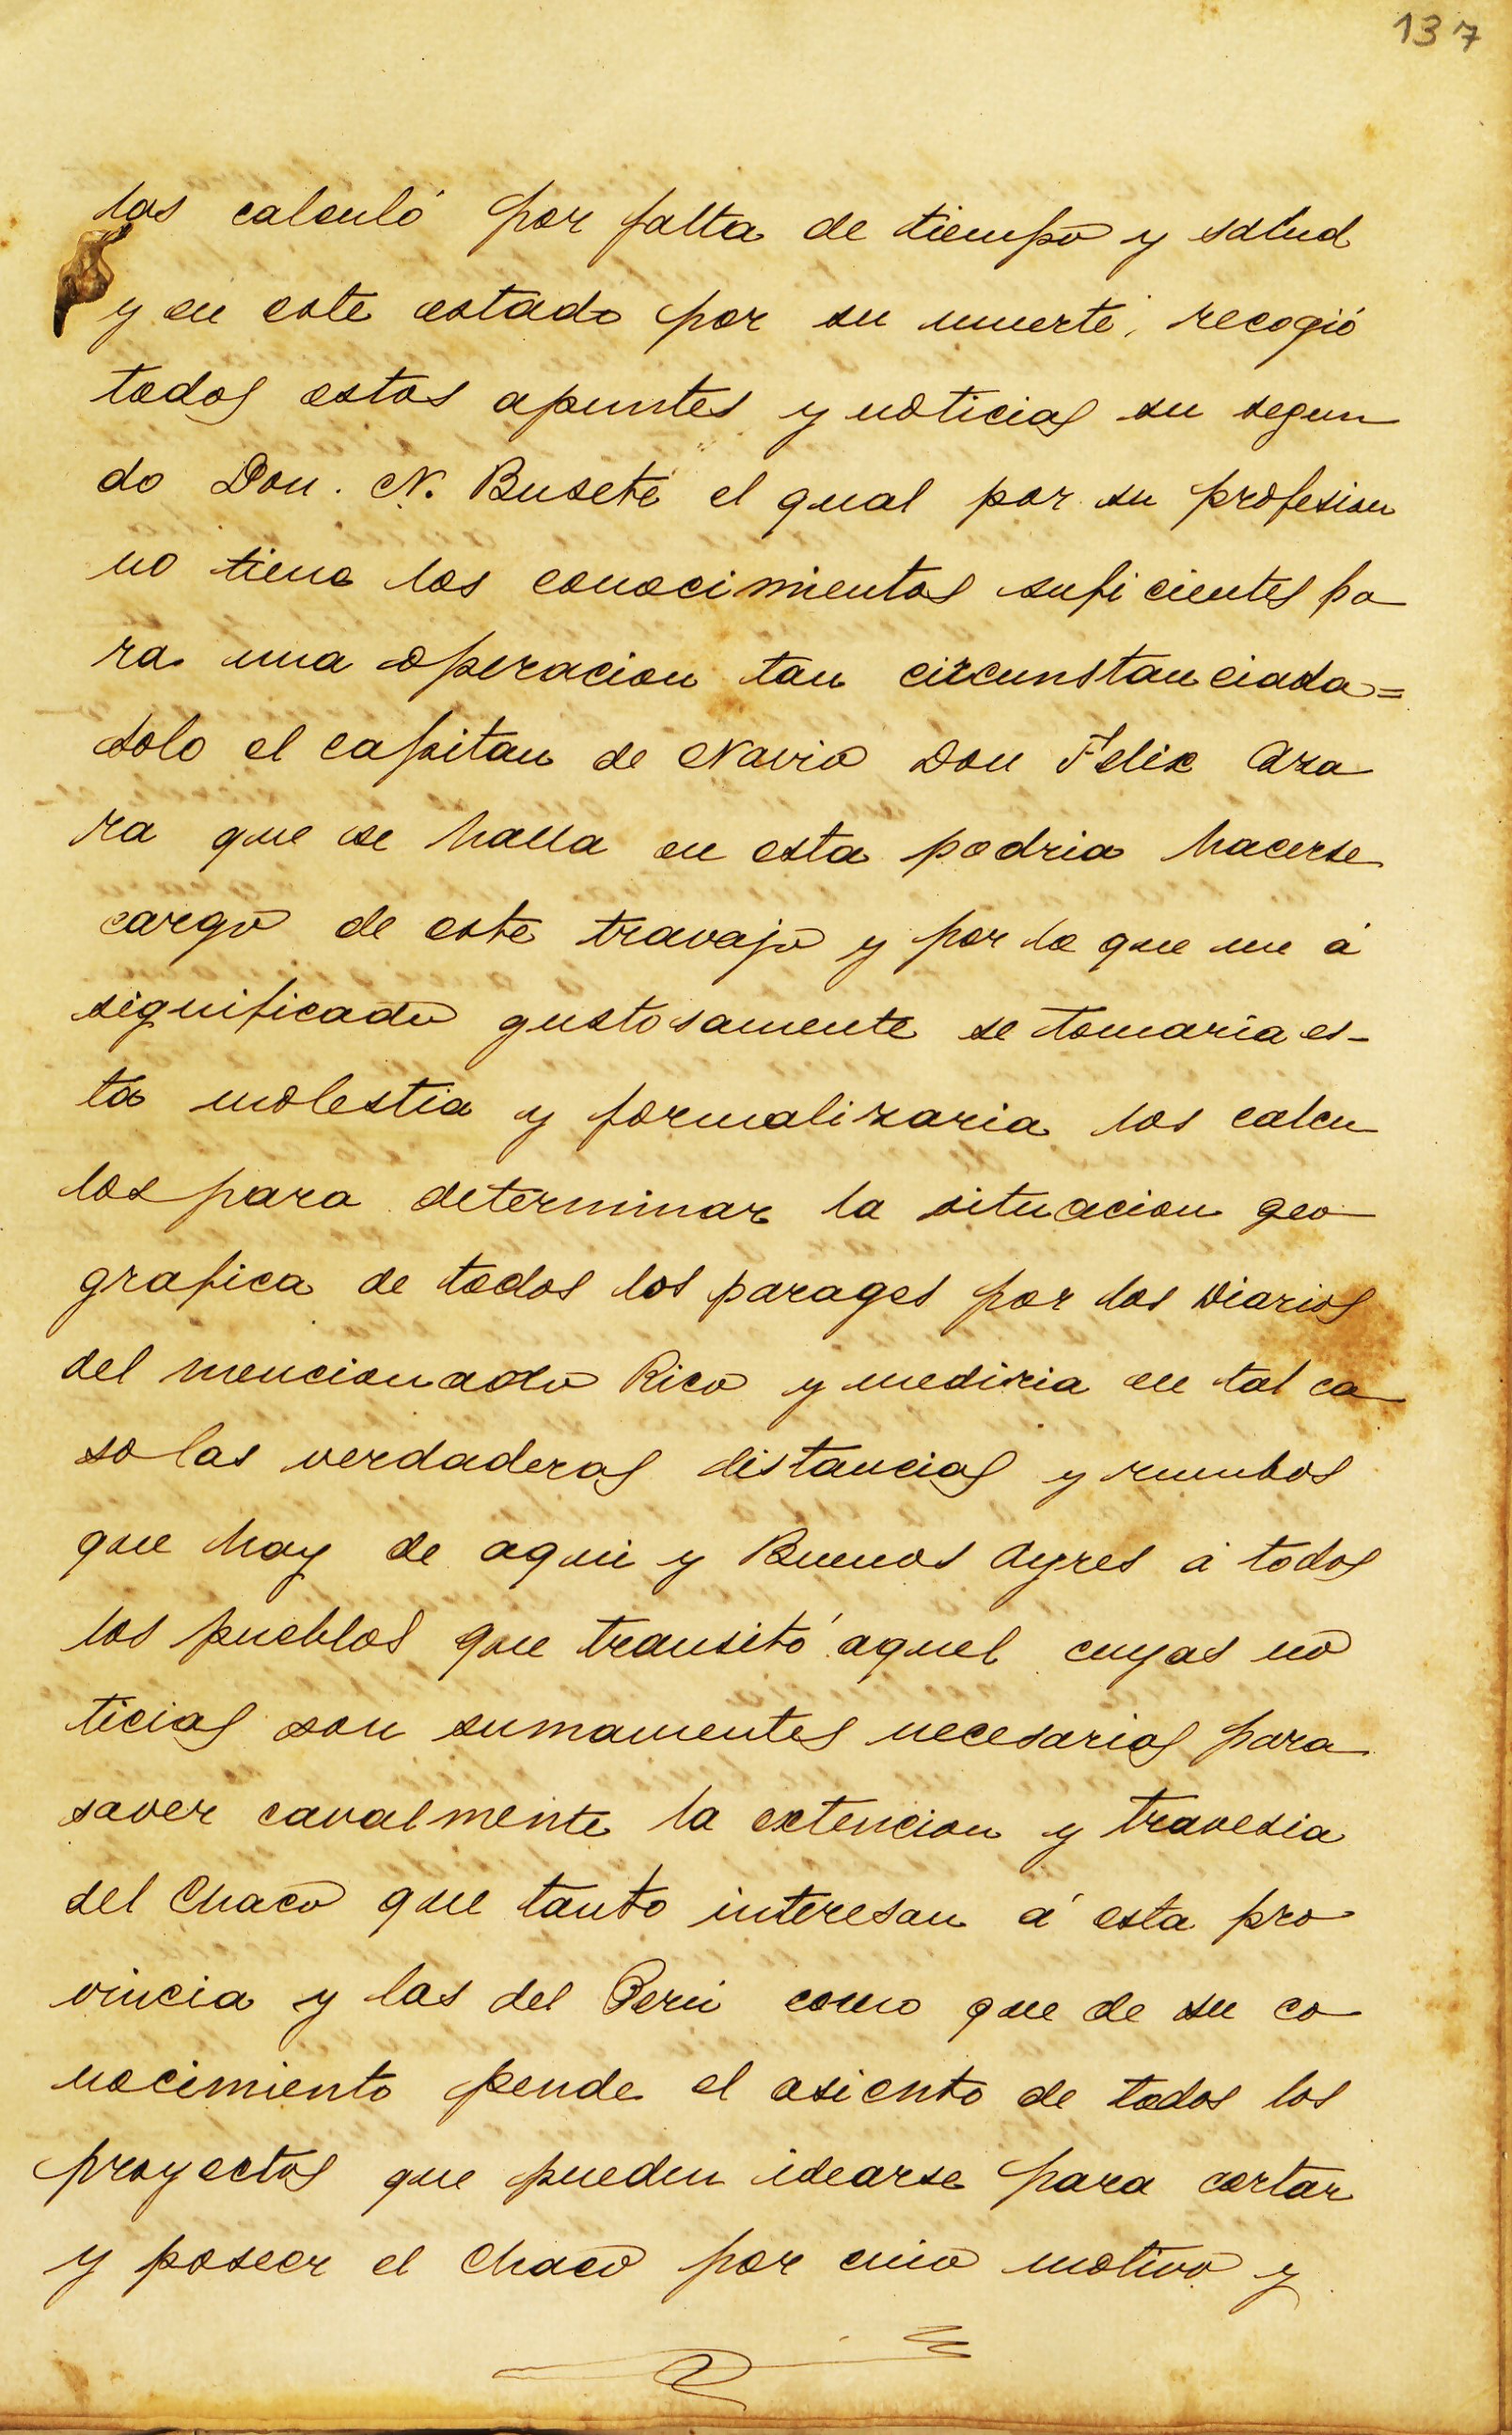 137
las calculó por falta de tiempo y salud
y en este estado por su muerte, recogió
todos estos apuntes y noticias su segun
do Don. N. Buseté el qual por su profesion
no tiene los conocimientos suficientes pa
ra una operacion tan circunstanciada=
solo el capitan de Navio Don Felix Aza
ra que se halla en esta podria hacerse
cargo de este travajo y por lo que me á
significado gustosamente se tomaria es-
ta molestia y formalizaria los calcu
los para determinar la situacion geo
grafica de todos los parages por los Diarios
del mencionado Rico y mediria en tal ca
so las verdaderas distancias y rumbos
que hay de aqui y Buenos Ayres á todos
los pueblos que transitó aquel cuyas no
ticias son sumamentes necesarias para
saver cavalmente la extencion y travesia
del Chaco que tanto interesan á esta pro
vincia y las del Perú como que de su co
nocimiento pende el asiento de todos los
proyectos que pueden idearse para cortar
y poseer el Chaco por cuio motivo y